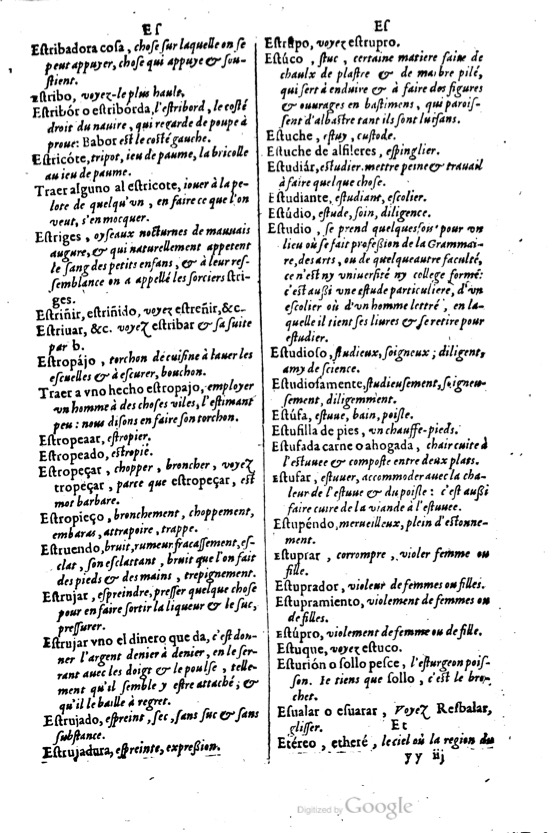 Es
Estribadora cosa, chose sur laquelle on se
peut appuyer, chose qui appuye & sou-
stient.
Estribo, voyez-le plus haut.
Estribór o estribórda, l'estribord, le costé
droit du nauire, qui regarde de poupe à
proue: Babor est le costé gauche.
Estricóte, tripot, ieu de paume, la bricolle
au ieu de paume.
Traer alguno al estricote, iouer à la pe-
lote de quelqu'vn, en faire ce que l'on
veut, s'en mocquer.
Estriges, oyseaux nocturnes de mauuais
augure, & qui naturellement appetent
le sang des petits enfans, & à leur res-
semblance on a appellé les sorciers stri-
ges.
Estriñir, estriñido, voyez estreñir, &c.
Estriuar, &c. voyez estribar & sa suite
par b.
Estropájo, torchon de cuisine à lauer les
escuelles & à escurer, bouchon.
Traer a vno hecho estropajo, employer
vn homme à des choses viles, l'estimant
peu: nous disons en faire son torchon.
Estropeaar, estropier.
Estropeado, estropié.
Estropeçar, chopper, broncher, voyez
tropeçar, parce que estropeçar, est
mot barbare.
Estropieço, bronchement, choppement,
embaras, attrapoire, trappe.
Estruendo, bruit, rumeur fracassement, es-
clat, son esclattant, bruit que l'on fait
des pieds & des mains, trepignement.
Estrujar, espreindre, presser quelque chose
pour en faire sortir la liqueur & le suc,
pressurer.
Estrujar vno el dinero que da, c'est don-
ner l'argent denier à denier, en le ser-
rant auec les doigt & le poulse, telle-
ment qu'il semble y estre attaché; &
qu'il le baille à regret.
Estrujado, espreint, sec, sans suc & sans
substance.
Estrujadura, espreinte, expression.
Es
Estrupo, voyez estrupro.
Estúco, stuc, certaine matiere faite de
chaulx de plastre & de marbre pilé,
qui sert à enduire & à faire des figures
& ouurages en bastimens, qui parois-
sent d'albastre tant ils sont luisans.
Estuche, estuy, custode.
Estuche de alfileres, espinglier.
Estudiár, estudier. mettre peine & trauail
à faire quelque chose.
Estudiante, estudiant, escolier.
Estúdio, estude, soin, diligence.
Estudio, se prend quelquesfois pour vn
lieu où se fait profession de la Grammai-
re, des arts, ou de quelque autre faculté,
ce n'est ny vniuersité ny college formé:
c'est aussi vne estude particuliere, d'vn
escolier où d'vn homme lettré, en la-
quelle il tient ses liures & se retire pour
estudier.
Estudioso, studieux, soigneux; diligent,
amy de science.
Estudiosamente, studieusement, soigneu-
sement, diligemment.
Estúfa, estuue, bain, poisle.
Estufilla de pies, vn chauffe-pieds.
Estufada carne o ahogada, chair cuite à
l'estuuee & composte entre deux plats.
Estufar, estuuer, accommoder auec la cha-
leur de l'estuue & du poisle: c'est aussi
faire cuire de la viande à l'estuuee.
Estupéndo, merueilleux, plein d'estonne-
ment.
Estuprar, corrompre, violer femme ou
fille.
Estuprador, violeur de femmes ou filles.
Estupramiento, violement de femmes ou
de filles.
Estúpro, violement de femme ou de fille.
Estuque, voyez estuco.
Esturión o sollo pesce, l'esturgeon pois-
son. Ie tiens que sollo, c'est le bro-
chet.
Esualar o esuarar, Voyez Resbalar,
glisser.
Et
Etéreo, etheré, le ciel où la region du
yy iij
Digitized by Google